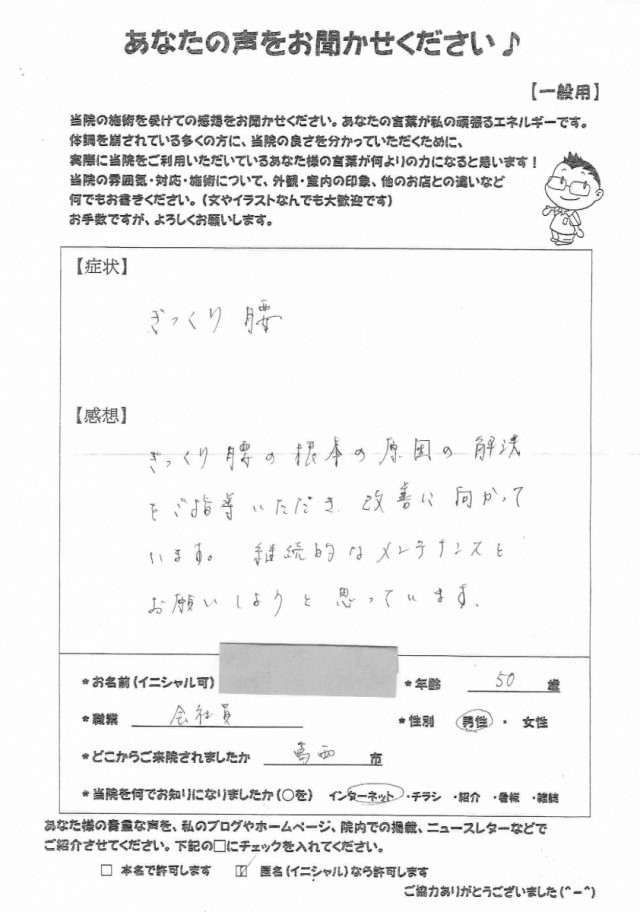 あなたの声をお聞かせください♪
【一般用】
当院の施術を受けての感想をお聞かせください。あなたの言葉が私の頑張るエネルギーです。
体調を崩されている多くの方に、当院の良さを分かっていただくために、
実際に当院をご利用いただいているあなた様の言葉が何よりの力になると思います！
当院の雰囲気・対応・施術について、外観・室内の印象、他のお店との違いなど
何でもお書きください。（文やイラストなんでも大歓迎です）
お手数ですが、よろしくお願いします。
【症状】
ぎっくり腰
【感想】
ぎっくり腰の根本の原因の解決
をご指導いただき、改善に向かって
います。 継続的なメンテナンスを
お願いしようと思っています。
*お名前（イニシャル可）
*年齢 50 歳
*職業 会社員
*性別 男性 ・ 女性
*どこからご来院されましたか 葛西 市
*当院を何でお知りになりましたか（○を） インターネット ・チラシ ・紹介 ・看板 ・雑誌
あなた様の貴重な声を、私のブログやホームページ、院内での掲載、ニュースレターなどで
ご紹介させてください。下記の□にチェックを入れてください。
□ 本名で許可します ☑ 匿名（イニシャル）なら許可します
ご協力ありがとうございました(^-^)